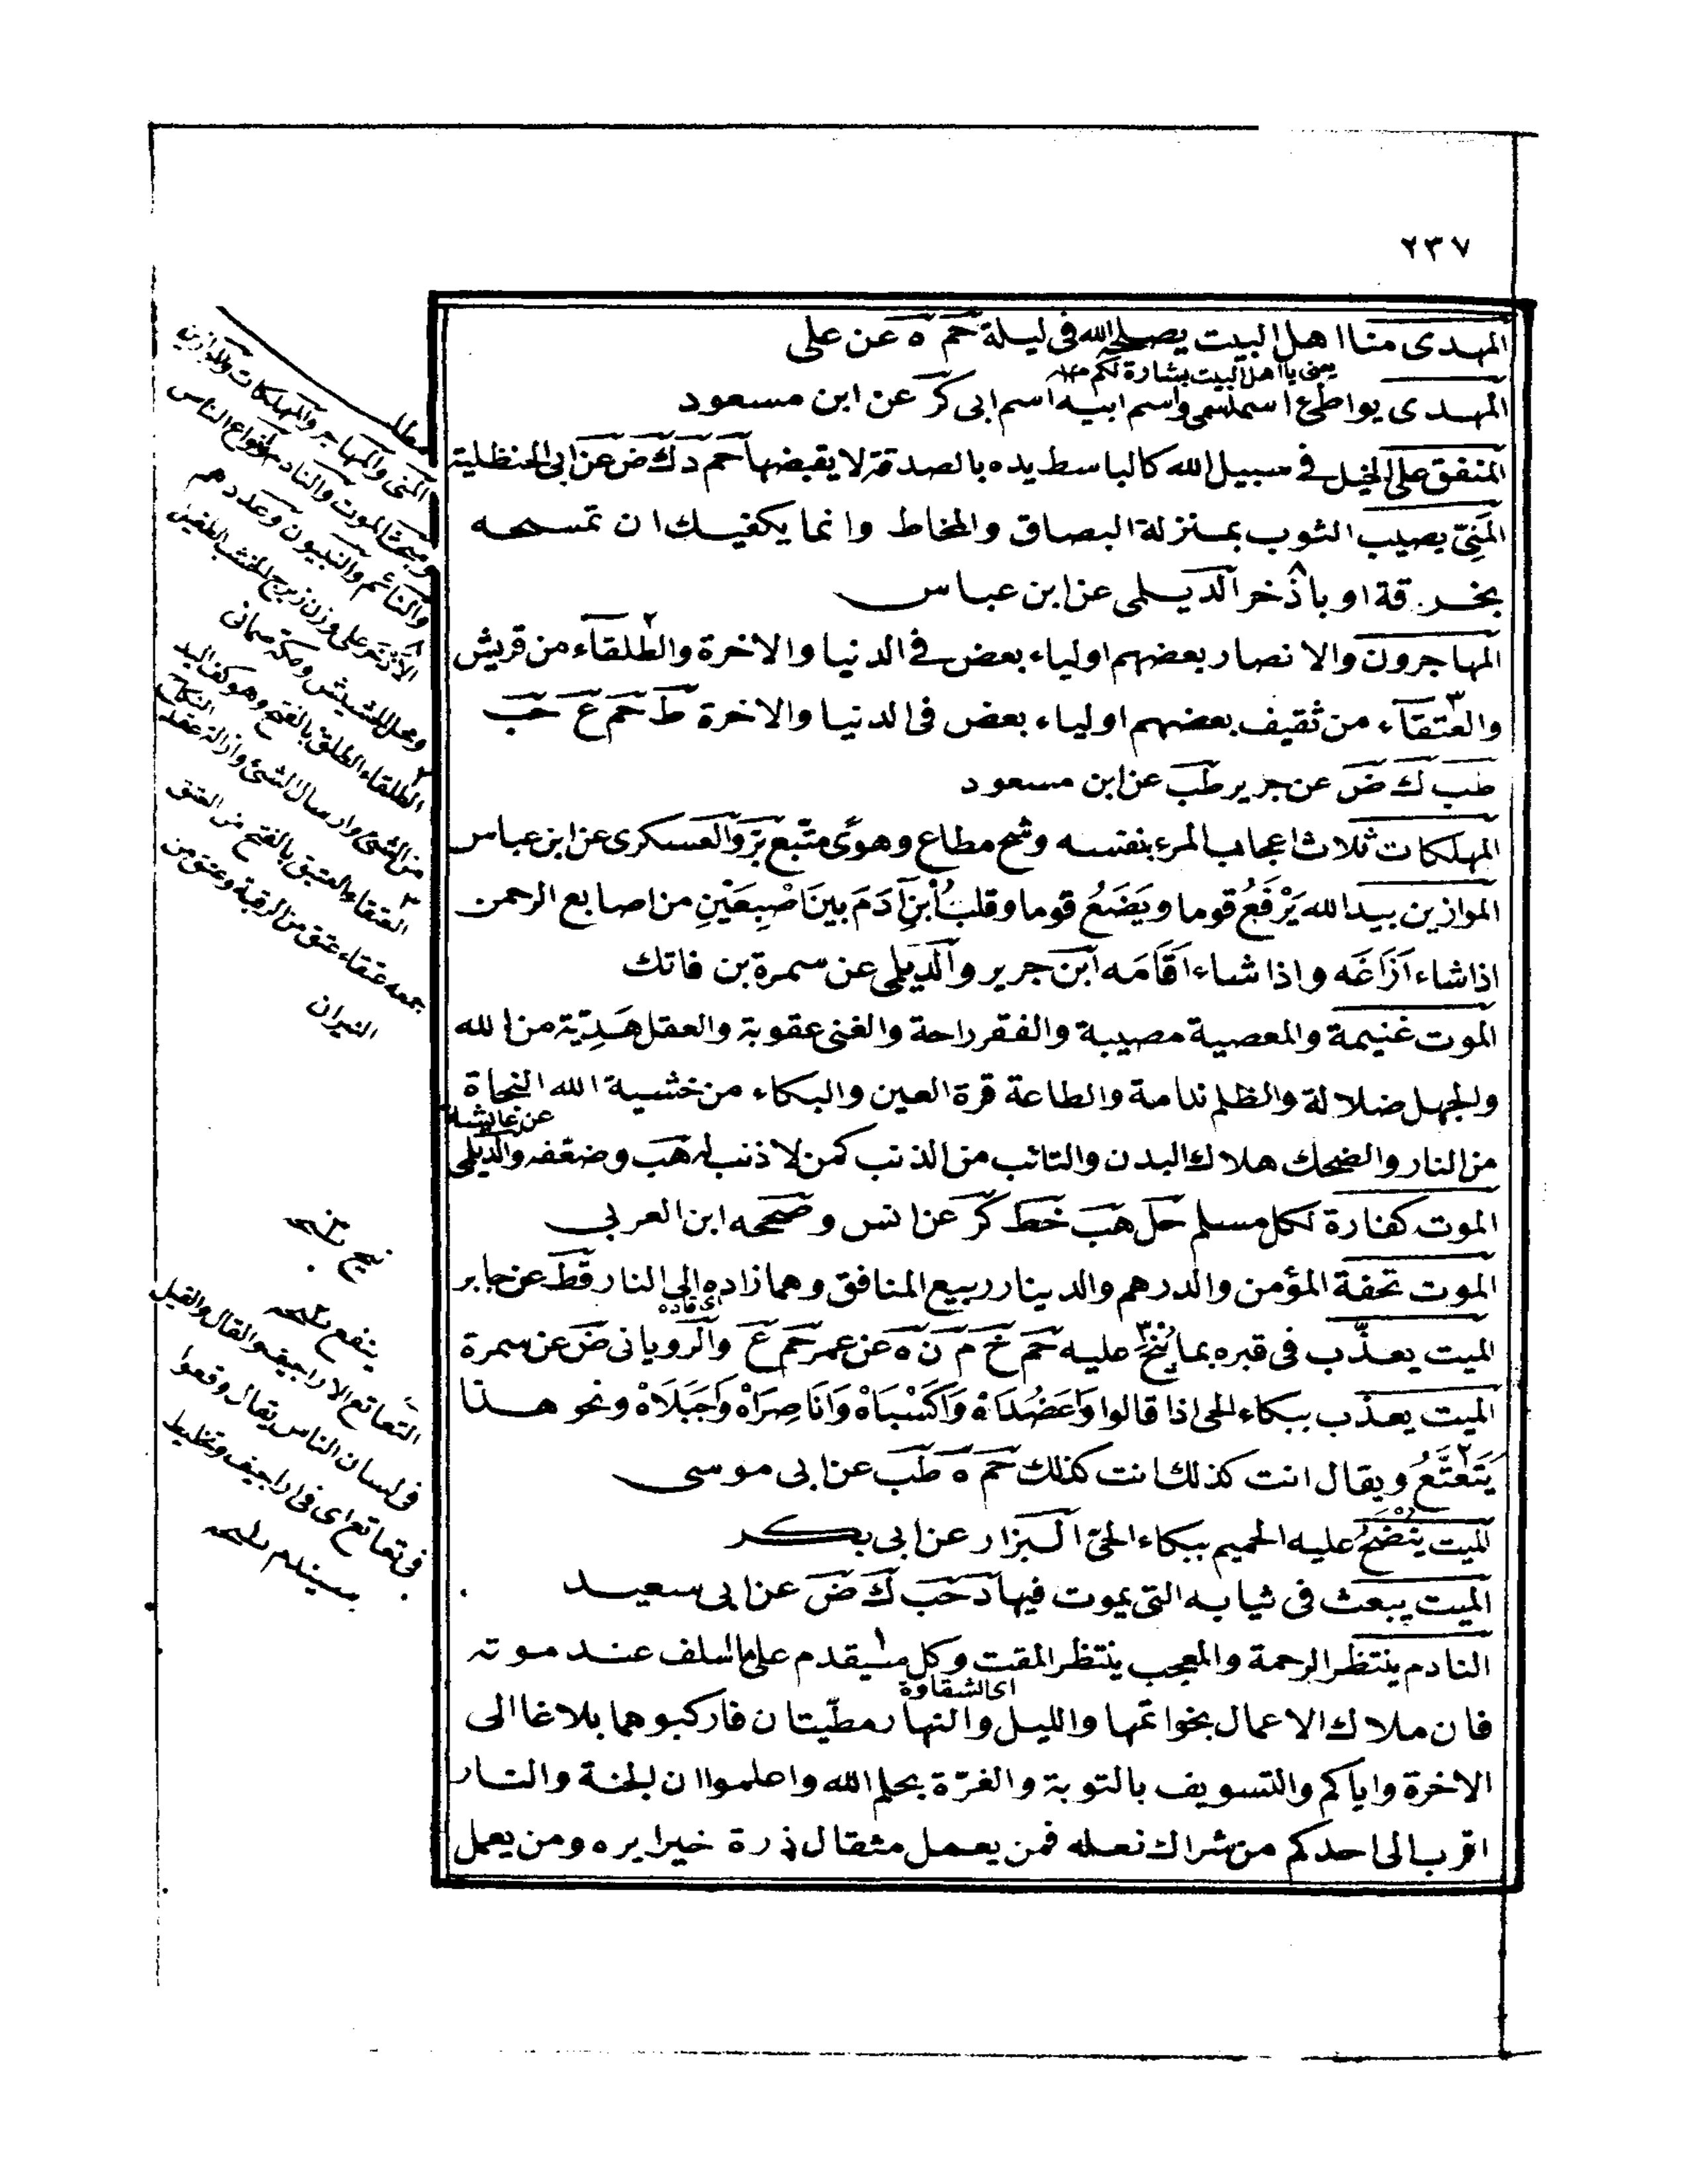 ٢٣٧
المهدى منا اهل البيت يصلحه الله فى ليلة حم ه عن على
يعنى يا اهل البيت بشارة لكم
المهدى يواطئ اسمه اسمى واسم ابيه اسم ابى كر عن ابن مسعود
المنفق على الخيل فى سبيل الله كالباسط يده بالصدقة لا يقبضها حم د ك ض عن ابى الحنظلية
المَنِىّ يصيب الثوب بمنزلة البصاق والمخاط وانما يكفيك ان تمسحه
بخرقة او باذخر الديلمى عن ابن عباس
المهاجرون والانصار بعضهم اولياء بعض فى الدنيا والاخرة والطلقاء من قريش
والعتقاء من ثقيف بعضهم اولياء بعض فى الدنيا والاخرة ط حم ع حب
طب ك ض عن جرير طب عن ابن مسعود
المهلكات ثلاث اعجاب المرء بنفسه وشح مطاع وهوًى متّبع بز والعسكرى عن ابن عباس
الموازين بيد الله يَرْفَعُ قوما ويَضَعُ قوما وقلبُ ابْنِ آدَمَ بين اَصْبِعَيْنِ من اصابع الرحمن
اذا شاء اَزَاغَه واذا شاء اَقَامَه ابن جرير والديلمى عن سمرة بن فاتك
الموت غنيمة والمعصية مصيبة والفقر راحة والغنى عقوبة والعقل هَدِيّة من الله
والجهل ضلالة والظلم ندامة والطاعة قرة العين والبكاء من خشية الله النجاة
عن عائشة
من النار والضحك هلاك البدن والتائب من الذنب كمن لا ذنب له هب وضعفه والديلمى
الموت كفارة لكل مسلم حل هب خط كر عن انس وصححه ابن العربى
الموت تحفة المؤمن والدرهم والدينار ربيع المنافق وهما زاده الى النار قط عن جابر
الميت يعذّب فى قبره بما نيح عليه حم خ م ن ه عن عمر حم ع والرويانى ض عن سمرة
الميت يعذّب ببكاء الحى اذا قالوا وَاعَضُدَاهْ وَاكَسْبَاهْ وَانَاصِرَاهْ وَاجَبَلَاهْ ونحو هذا
يَتَعْتَّعُ ويقال انت كذلك انت كذلك حم ه طب عن ابى موسى
الميت يَنْضَحُ عليه الحميم ببكاء الحىّ البزار عن ابى بكر
الميت يبعث فى ثيابه التى يموت فيها د حب ك ض عن ابى سعيد
النادم ينتظر الرحمة والمعجب ينتظر المقت وكل سيقدم على ما سلف عند موته
اى الشقاوة
فان ملاك الاعمال بخواتمها والليل والنهار مطيّتان فاركبوهما بلاغا الى
الاخرة واياكم والتسويف بالتوبة والغرّة بحلم الله واعلموا ان الجنة والنار
اقرب الى احدكم من شراك نعله فمن يعمل مثقال ذرة خيرا يره ومن يعمل
المنى والمهاجر والمهلكات والموازين
والنائم والنبيون وعددهم
الطلقاء الطلق بالفتح وهو كف اليد
العتقاء والعتيق بالفتح من العتق
جمعه عتقاء عتق من الرقبة وعتق من
النيران
نيح نسخه
ينفع نسخه
التعاتع الاراجيف والقال والقيل
فى لسان الناس يقال وقعوا
فى تعاتع اى فى اراجيف وتخليط
سيندم نسخه